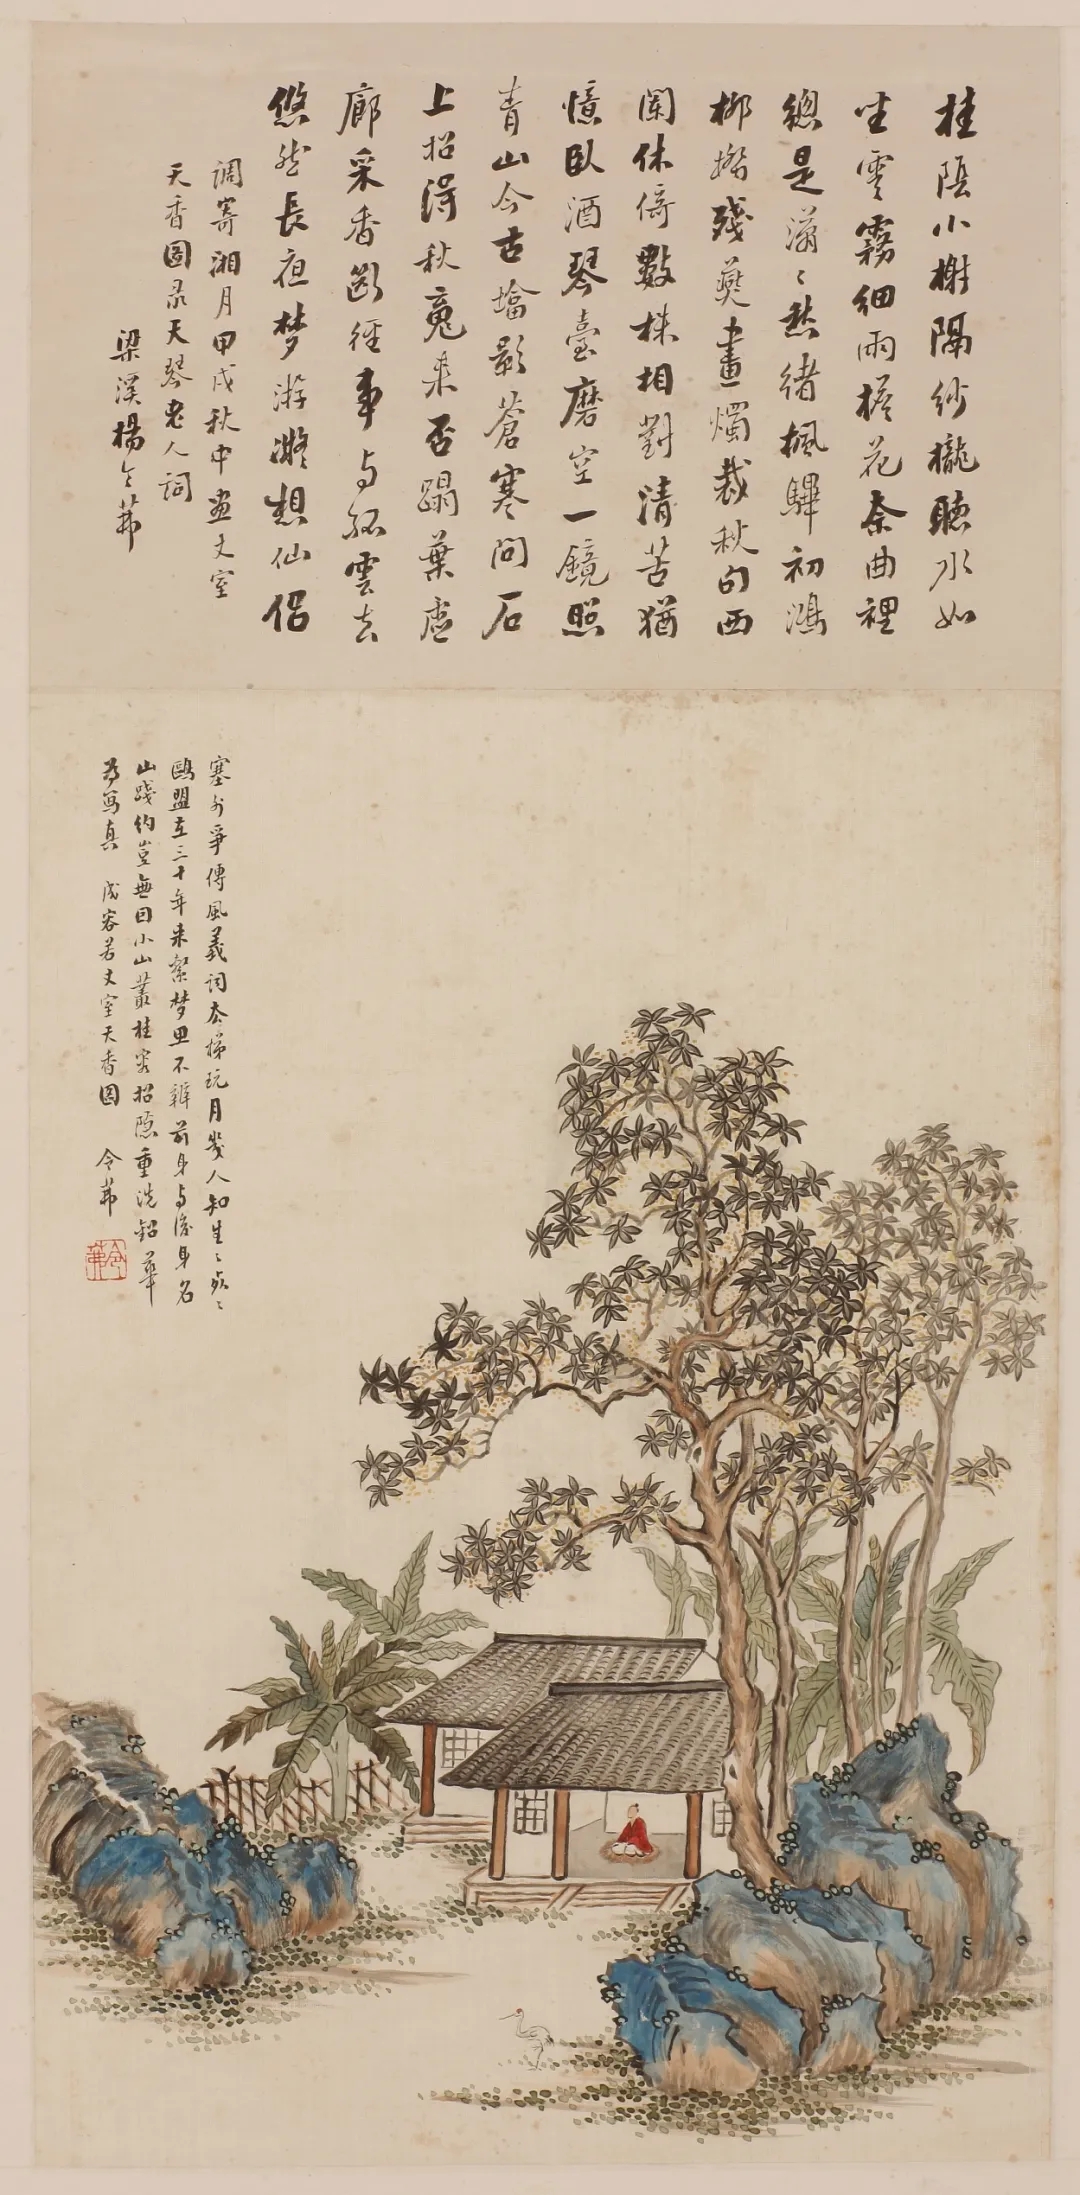 桂陰小榭隔紗櫳聽水如
坐雲霧細雨花曲裡
總是瀟〻愁緒楓驛初鴻
柳橋殘燕畫燭裁秋句西
闌休倚數株相對清苦猶
憶臥酒琴臺磨空一鏡照
青山今古墖影蒼寒問石
上招得秋䰟來否蹋葉虛
廊采香斷徑事与孤雲去
悠然長夜梦游凝想仙侶
調寄湘月甲戌秋中画丈室
天香圖录天琴老人詞
梁溪楊令茀
塞外爭傳風義詞梯玩月幾人知生〻
鷗盟在三十年来縈梦思不辨前身与後身名
山踐約豈無因小山叢桂容招隱重洗鉛華
為寫真 成容若丈室天香圖 令茀
令茀